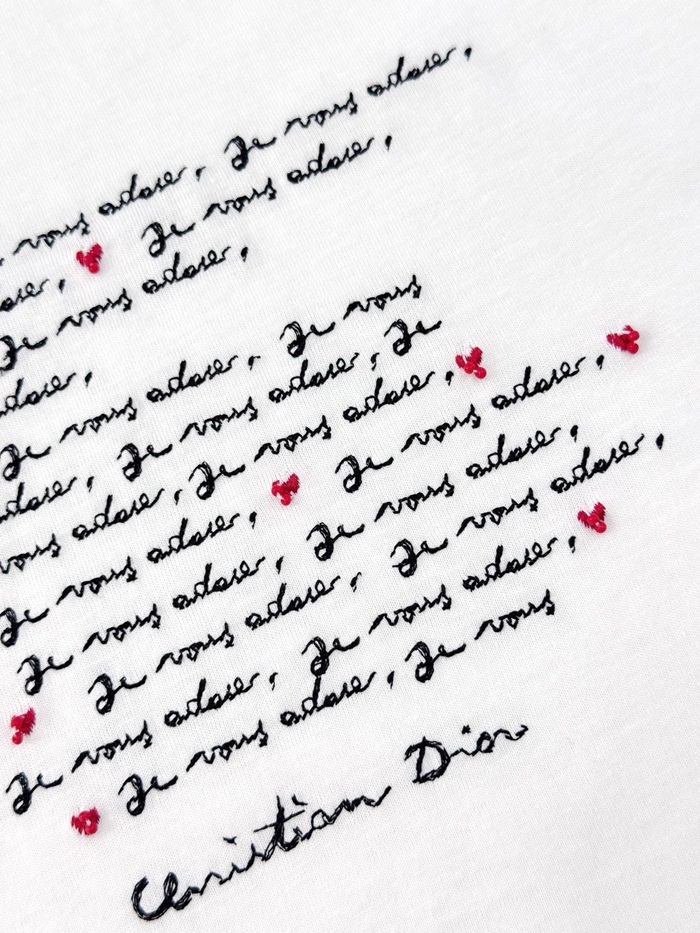 vous adore, Je vous adore,
ore, ♥ Je vous adore,
Je vous adore,
adore,
Je vous adore, Je vous
adore, Je vous adore, Je
vous adore, Je vous adore, ♥
Je vous adore, ♥ Je vous adore, ♥
Je vous adore, Je vous adore,
♥ Je vous adore, Je vous adore,
Je vous adore, Je vous adore, ♥
♥ Je vous adore, Je vous
Christian Dior